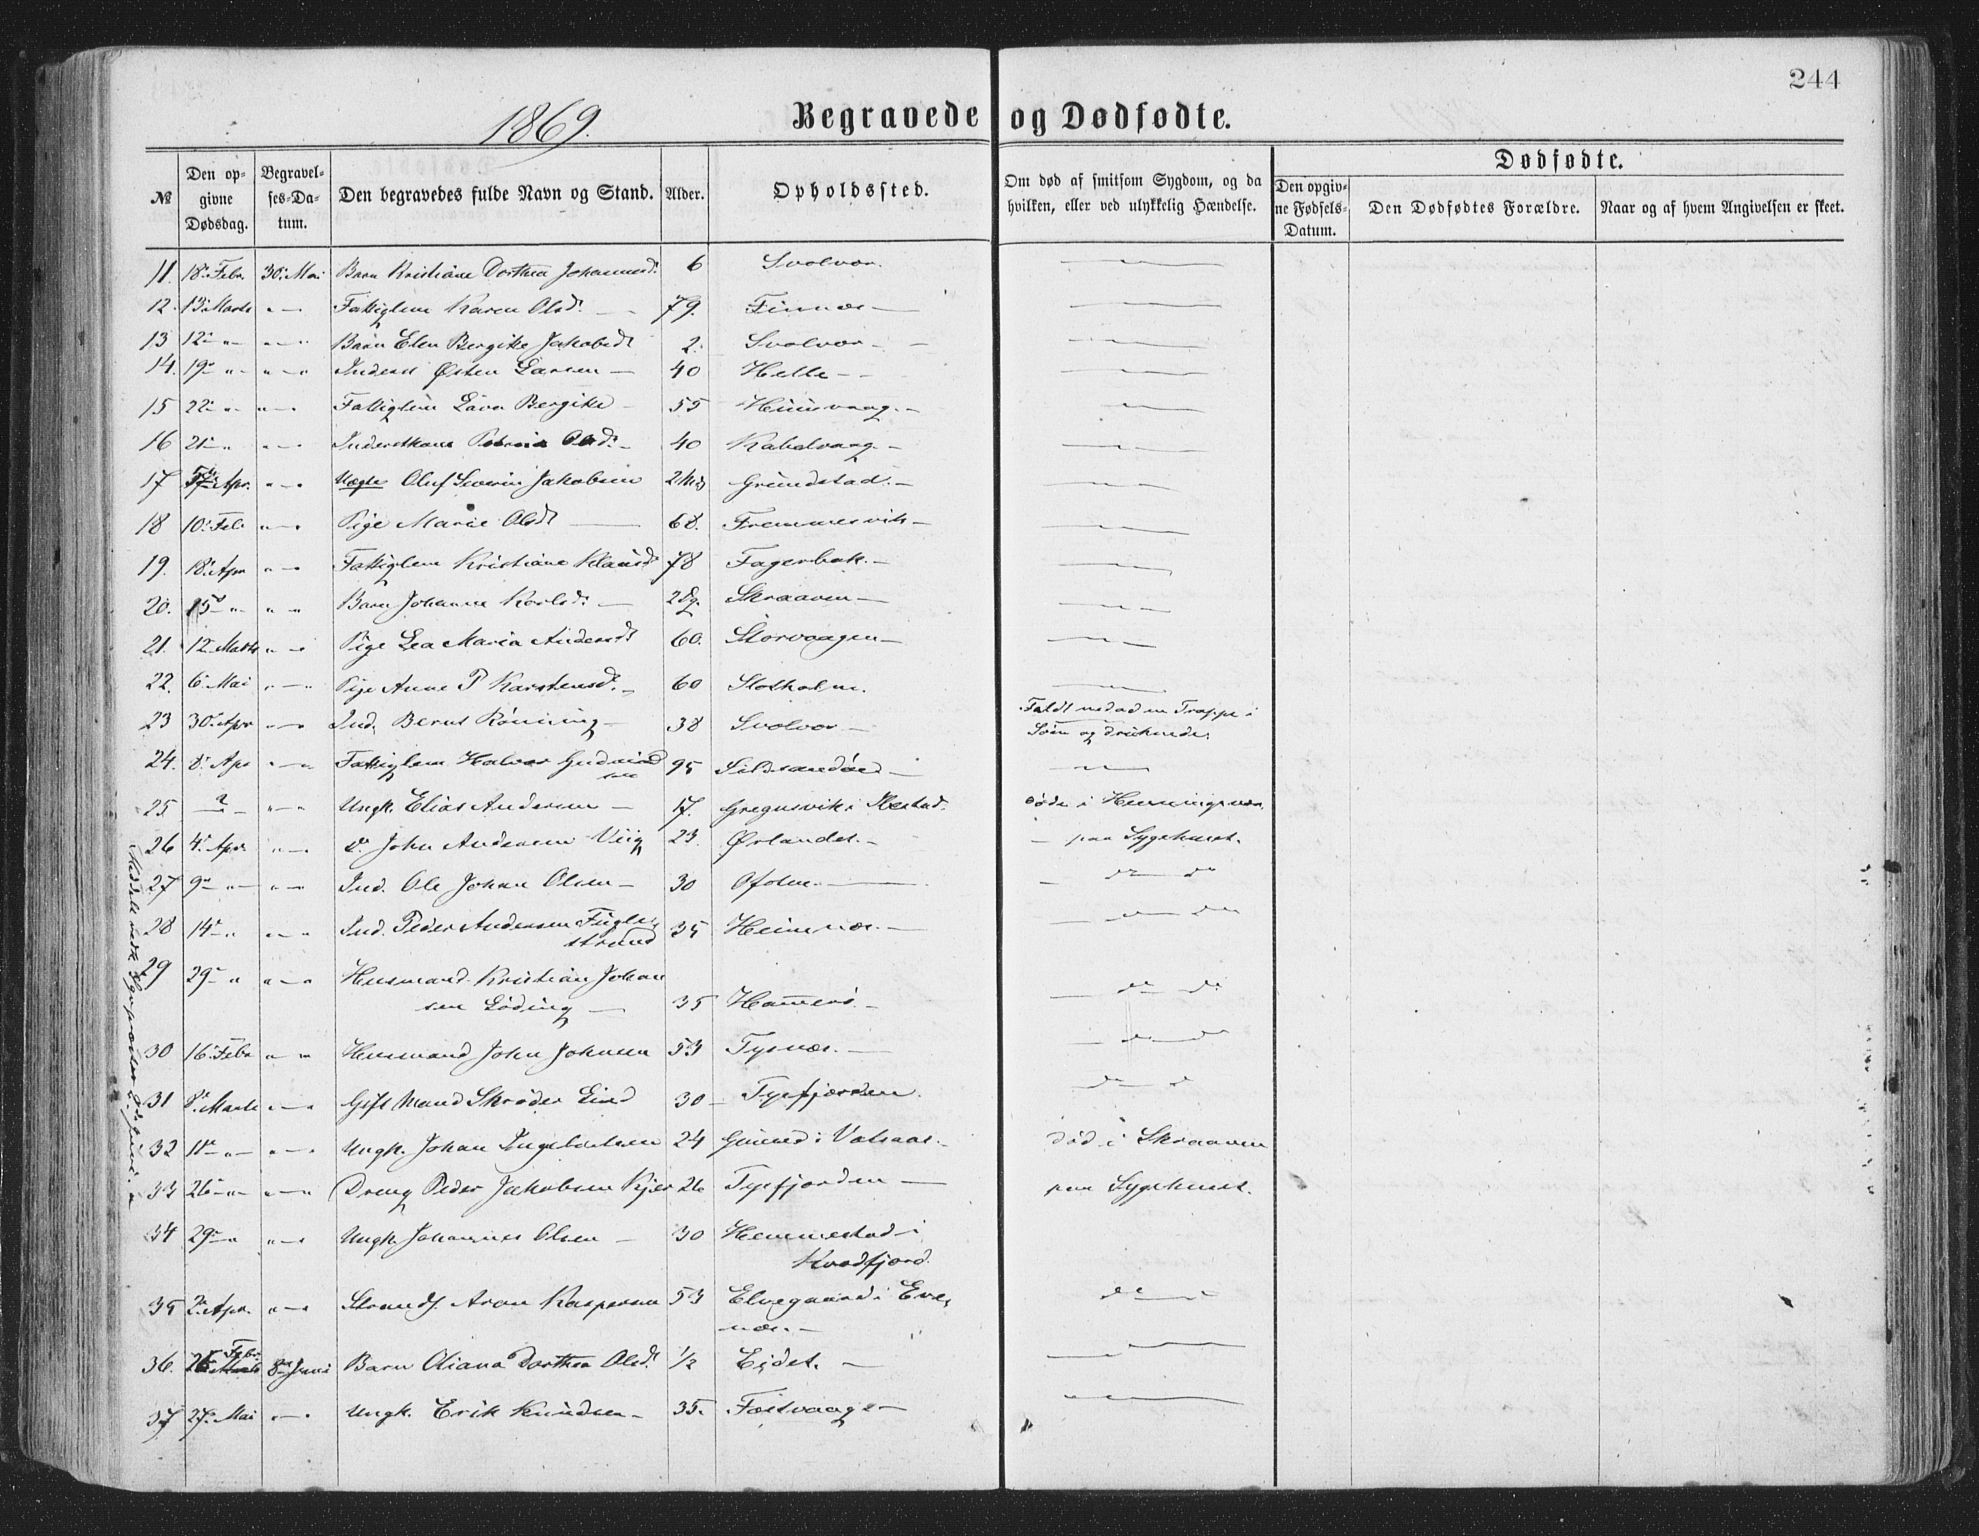 244
1869.
Begravede og Dødfødte.
Dødfødte.
№ Den opgivne Dødsdag. Begravelses-Datum. Den begravedes fulde Navn og Stand. Alder. Opholdssted. Om død af smitsom Sygdom, og da hvilken, eller ved ulykkelig Hændelse. Den opgivne Fødsels-Datum. Den Dødfødtes Forældre. Naar og af hvem Angivelsen er skeet.
11. 18. Febr. 30. Mai Barn Kristiane Dorthea Johannesd. 6 Svolvær.
12. 13. Marts " Fattiglem Karen Olsd. 79. Finnæs
13 12 " " Barn Elen Bergitte Jakobsd 2. Svolvær
14. 19 " " Inderst Østen Larsen 40 Helle
15 22 " " Fattiglem Lava Bergitte 55
16 21 " " Inderstkone Olsd. 40 Kabelvaag
17 5 Apr. " Uægte Oluf Severin Jakobsen 2 Md Grundstad.
18 10. Feb " Pige Marie Olsd 68. Fremmesvik
19. 18. Apr " Fattiglem Kristiane Klausd 78 Fagerbak.
20. 15 " " Barn Johanna Karlsd. 2 Dg. Skraaven
21. 12 Marts " Pige Lea Maria Andersd 60. Storvaagen
22. 6 Mai " Pige Anne P Karstensd. 60 Slotholm.
23 30. Apr " Ind. Bernt Rønning 38 Svolvær Faldt ned ad en Trappe i
Søen og druknede.
24. 8. Apr " Fattiglem Halvor Gudmundsen 95
25. ? " Ungk. Elias Andersen 17. Gregusvik i døde i Henningsvær
26 4. Apr. " d. John Andersen Viig 23. Ørlandet. paa Sygehuset.
27 9 " " Ind. Ole Johan Olsen 30 Ofoten do do
28 14 " " Ind. Peder Andersen Fuglestrand 35 Heimnæs. do do
29 29 " " Husmand Kristian Johansen Løding 35 Hammerø. do do
30 16. Febr " Husmand John Johnsen 53 Tysnæs. do do
31 8. Marts " Gift Mand Skrøder 30 Tysfjorden. do d
32 11 " " Ungk. Johan Ingebrigtsen 24 død i Skraaven
33 26 " " Dreng Peder Jakobsen Kjær 26 Tysfjorden paa Sygehuset.
34 29 " " Ungk. Johannes Olsen 30 Hemmestad i
Kvædfjord.
35 2. Apr. " Strands. Aron Kaspersen 53 Elvegaard i Evenæs. do
36. 26 Febr. 8 Juni Barn Oliana Dorthea Olsd. ½ Eidet.
37 27. Mai " Ungk. Erik Knudsen 35. Festvaag